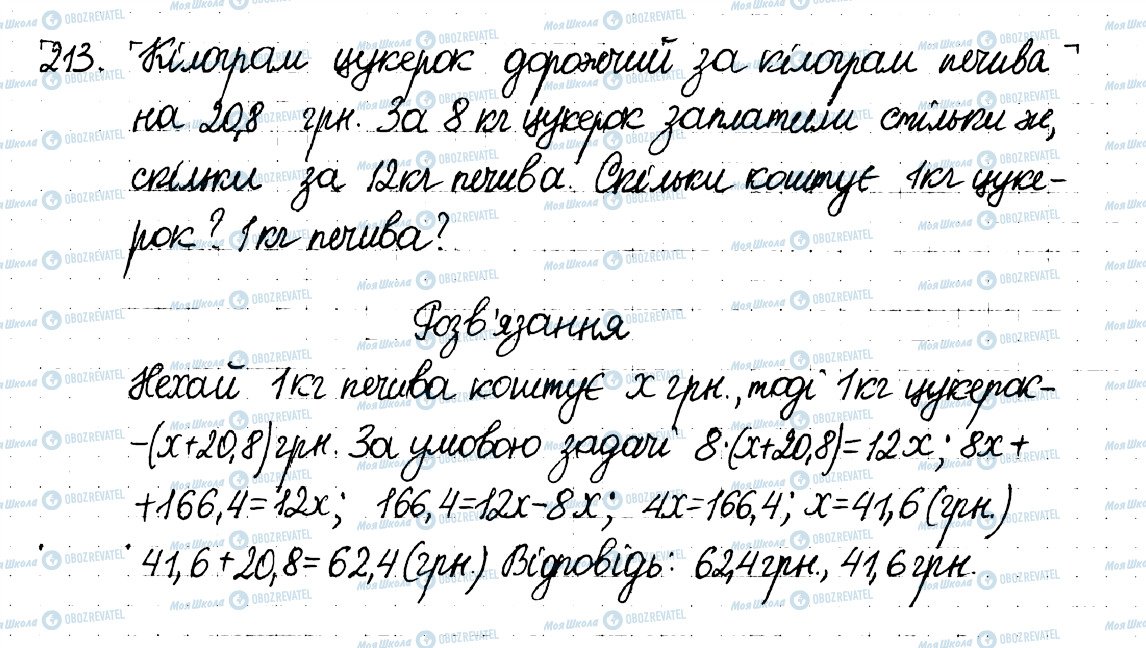 213. Кілограм цукерок дорожчий за кілограм печива
на 20,8 грн. За 8 кг цукерок заплатили стільки ж,
скільки за 12 кг печива. Скільки коштує 1 кг цуке-
рок? 1 кг печива?
Розв'язання
Нехай 1 кг печива коштує x грн., тоді 1 кг цукерок-
-(x+20,8) грн. За умовою задачі 8·(x+20,8)=12x; 8x+
+166,4=12x; 166,4=12x-8x; 4x=166,4; x=41,6 (грн.)
41,6+20,8=62,4 (грн.) Відповідь: 62,4 грн., 41,6 грн.